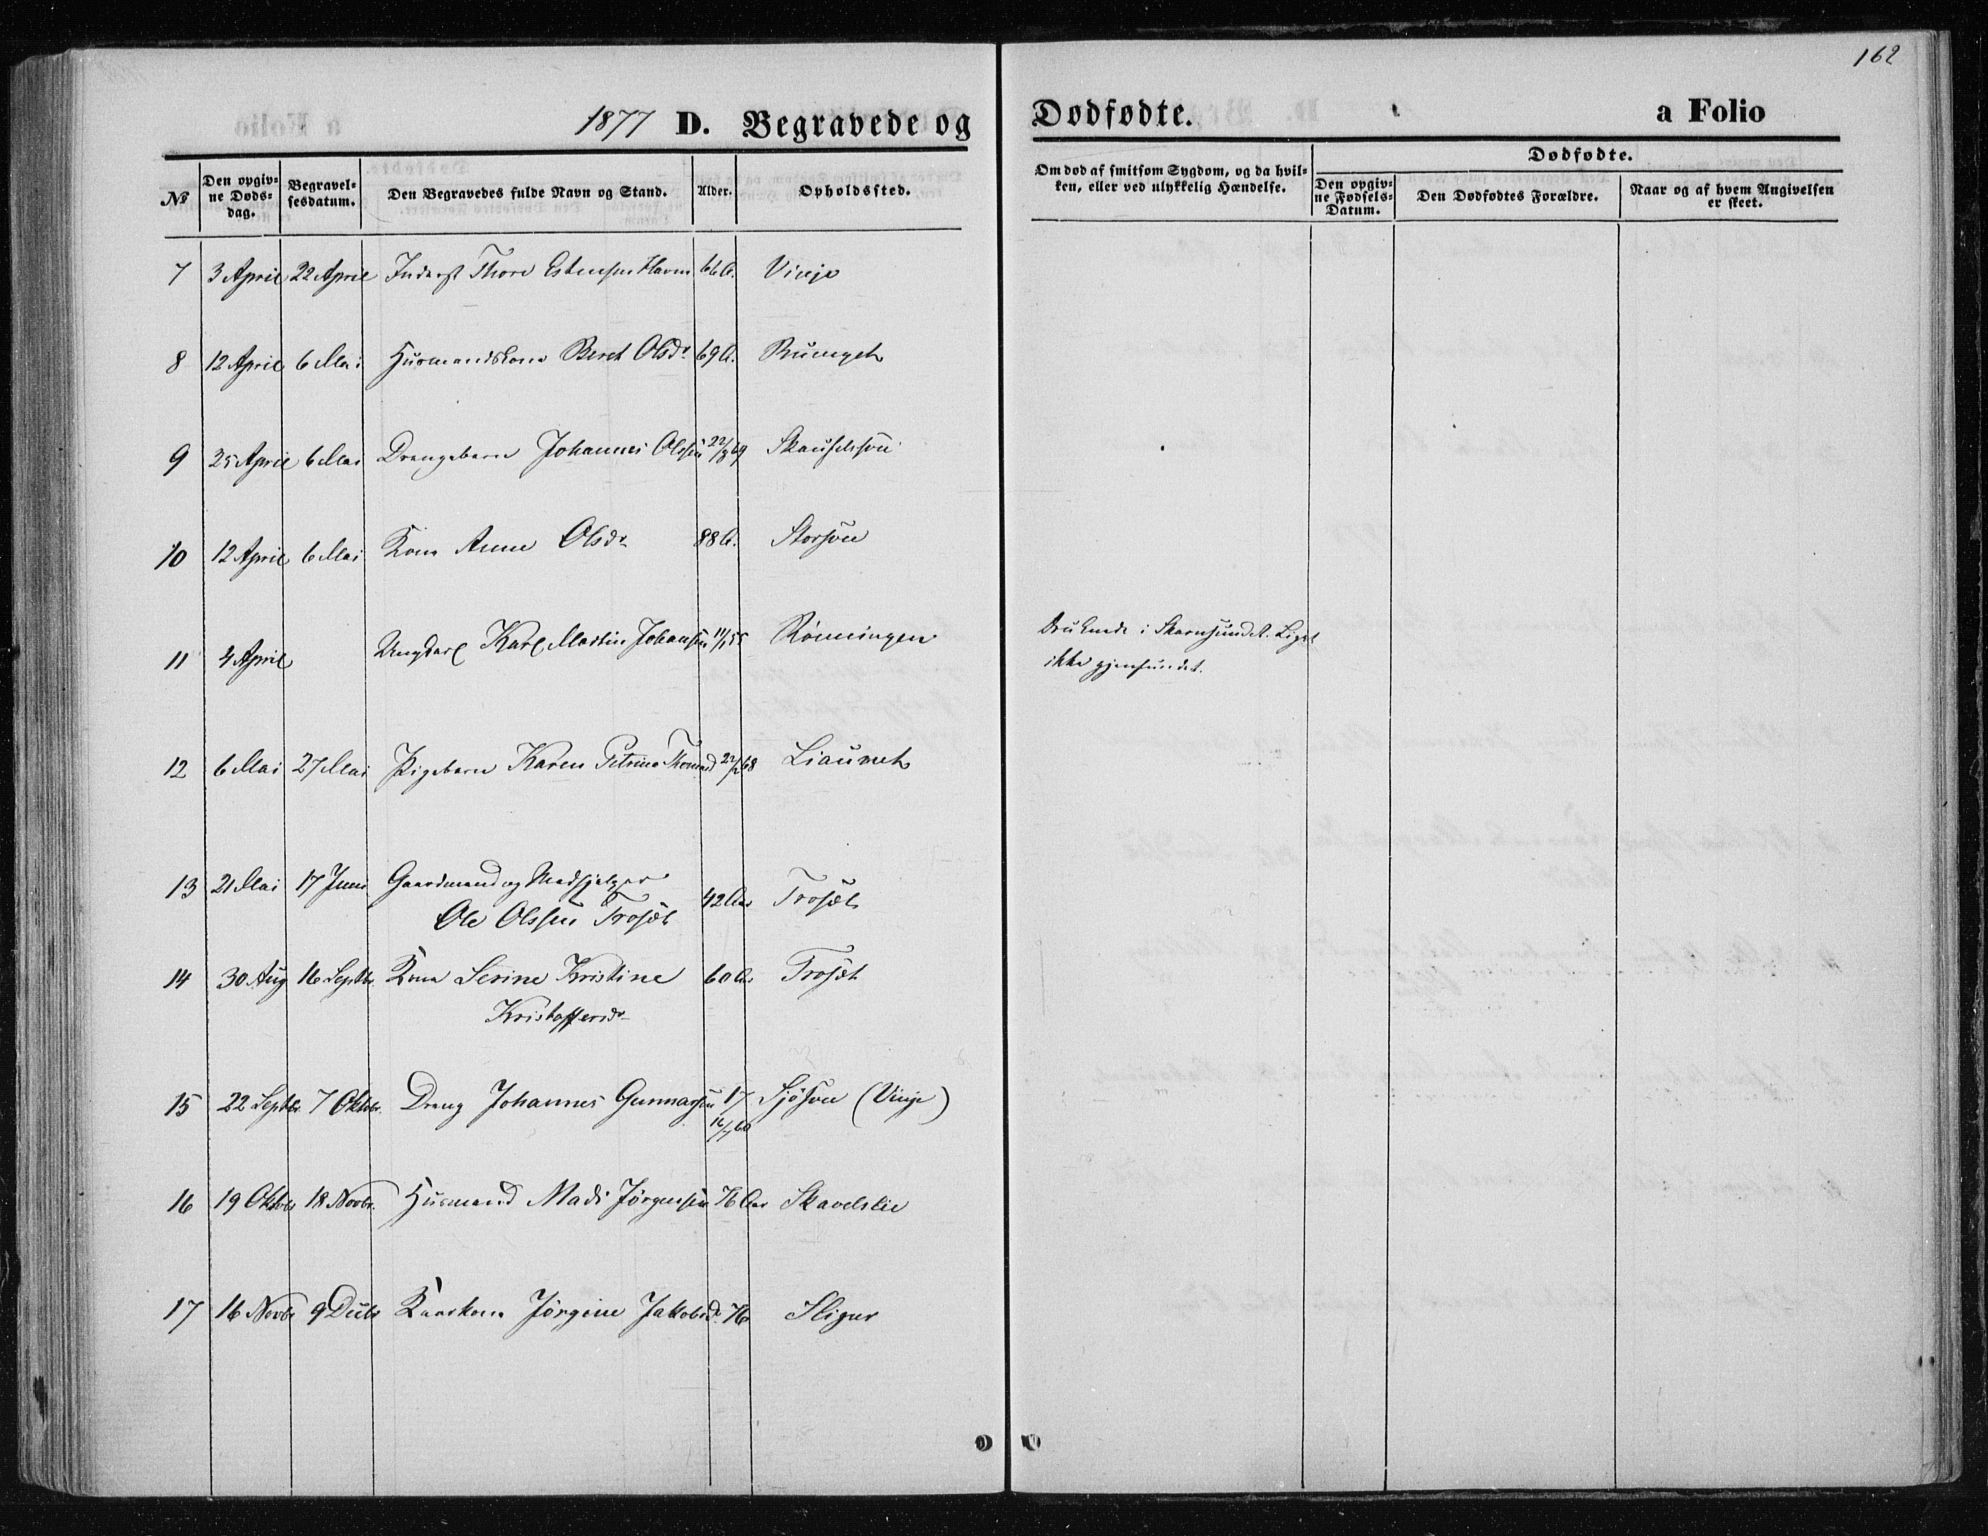 162
1877 D. Begravede og Dødfødte. a Folio
No
Den opgiv-
ne Døds-
dag.
Begravel-
sesdatum.
Den Begravedes fulde Navn og Stand.
Alder.
Opholdssted.
Om død af smitsom Sygdom, og da hvil-
ken, eller ved ulykkelig Hændelse.
Dødfødte.
Den opgiv-
ne Fødsels-
Datum.
Den Dødfødtes Forældre.
Naar og af hvem Angivelsen
er skeet.
7 3 April 22 April Inderst Thore Estensen 66 A. Vinje
8 12 April 6 Mai Husmandskone Beret Olsdr 69 A.
9 25 April 6 Mai Drengebarn Johannes Olsen 22/8 69
10 12 April 6 Mai Kone Anne Olsdr 88 A. Storsøen
11 4 April Ungkarl Karl Martin Johansen 11/1 55 Rønningen Druknede i Skarnsundet. Liget
ikke gjenfundet.
12 6 Mai 27 Mai Pigebarn Karen Petrine Thomasd 22/2 68 Liaunet
13 21 Mai 17 Juni Gaardmand og Medhjelper
Ole Olssen Trosæt 42 Aar Trosæt
14 30 Aug 16 Septbr. Kone Serine Kristine 60 Aar Trosæt
Kristoffersdr
15 22 Septbr. 7 Oktobr. Dreng Johannes Gunnarsen 17 Sjøsøen (Vinje)
16/7 60
16 19 Oktobr 18 Novbr. Husmand Mads Jørgensen 76 Aar Skavdslie
17 16 Novbr 9 Decbr Kaarkone Jørgine Jakobsd. 76 Sliper